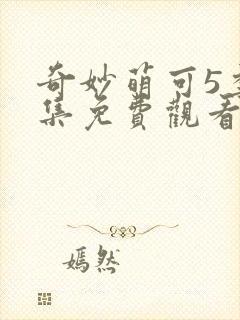 奇妙萌可5季
集免費觀看
嫣然